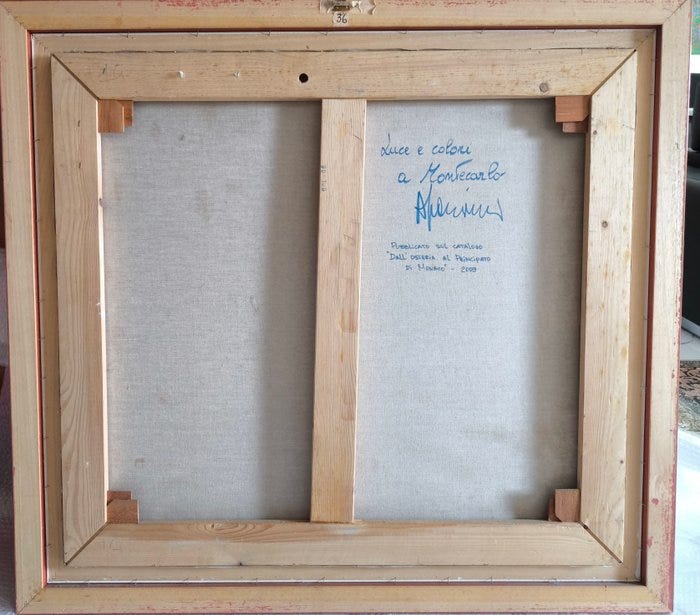 36
Luce e colori
a Montecarlo
PUBBLICATO SUL CATALOGO
"DALL'OSTERIA AL PRINCIPATO
DI MONACO" - 2009